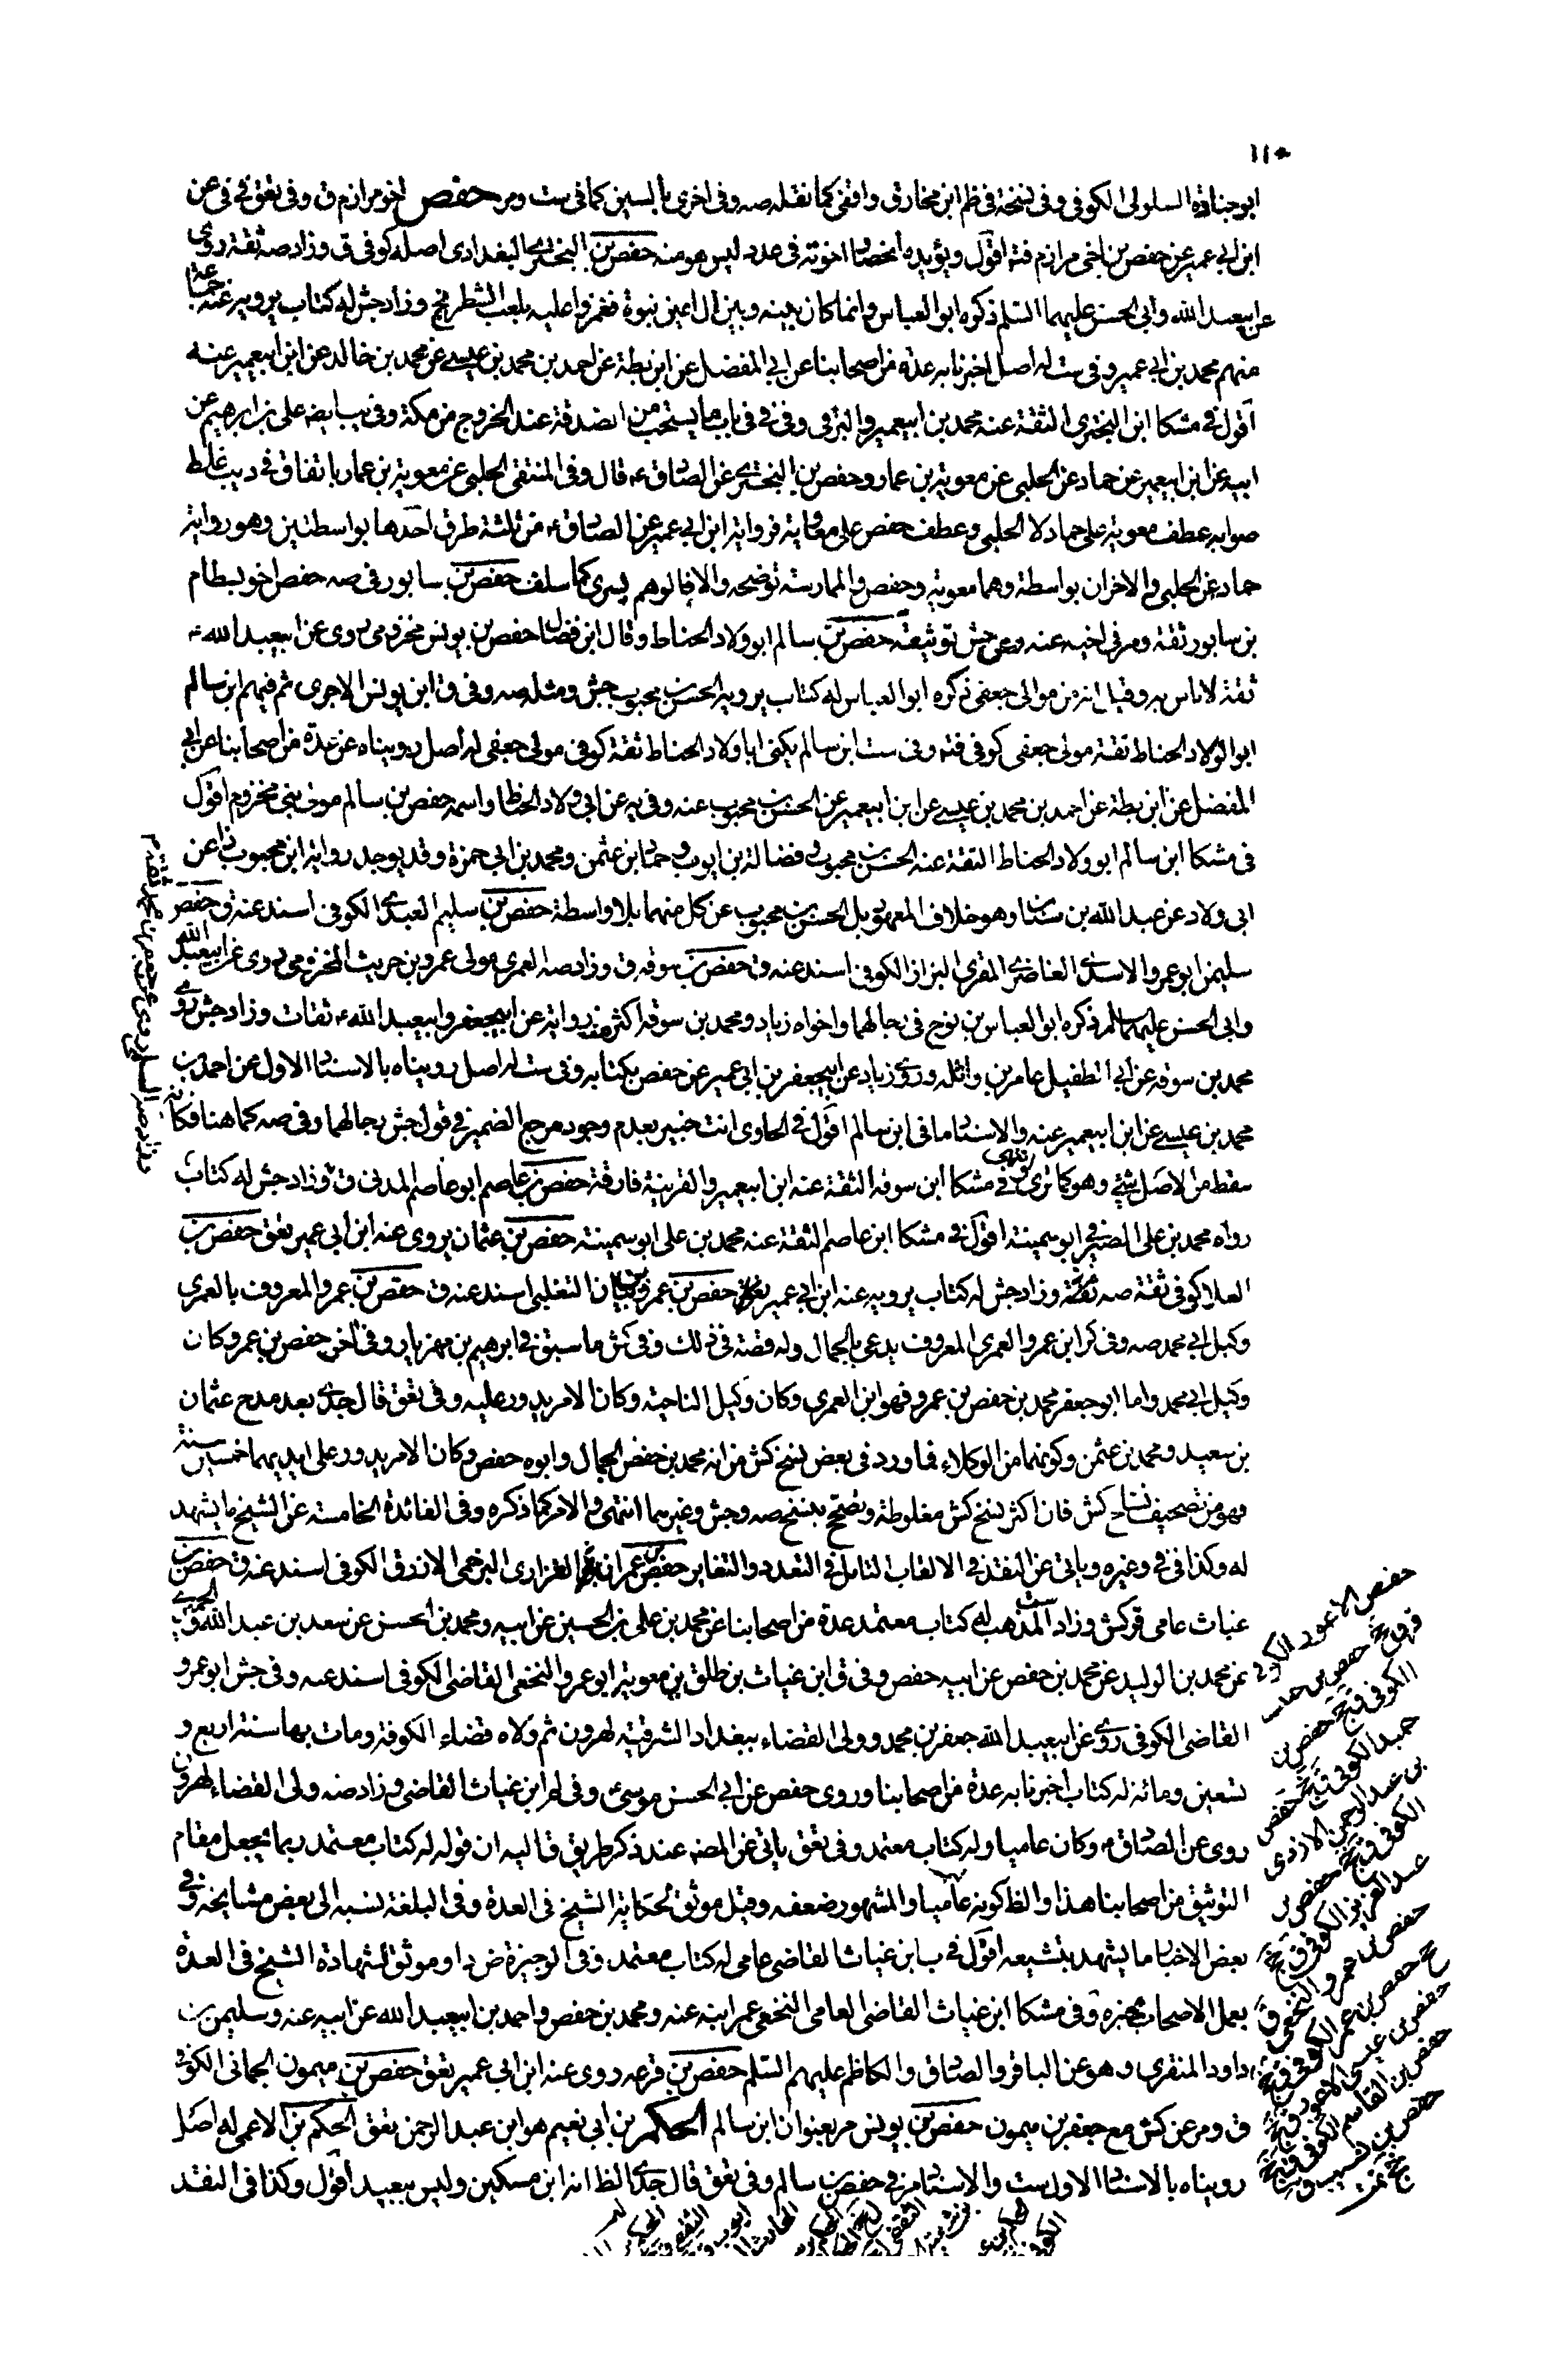 ١١٠
ابو جنادة السلولى الكوفى وفى نسخة فى ظم ابن مخارق واقفى كما نقله صه وفى اخرى بالسين كما فى ست ومر حفص اخو مرازم ق وفى تعق فى فى عن
ابن ابى عمير عن حفص بن اخى مرازم فتد اقول ويؤيده انحصار اخوته فى عدد ليس هو منه حفص بن البخترى البغدادى اصله كوفى ق وزاد صه ثقة روى
عن ابيعبد الله وابى الحسن عليهما السّلم ذكره ابو العباس وانما كان بينه وبين ال اعين نبوة فغمزوا عليه بلعب الشطرنج وزاد جش له كتاب يرويه عنه جماعة
منهم محمد بن ابى عمير وفى ست له اصل اخبرنا به عدة من اصحابنا عن ابى المفضل عن ابن بطة عن احمد بن محمد بن عيسى عن محمد بن خالد عن ابن ابيعمير عنه
اقول فى مشكا ابن البخترى الثقة عنه محمد بن ابيعمير والبرقى وفى فى فى باب ما يستحب من الصدقة عند الخروج من مكة وفى يب ايضه على بن ابرهيم عن
ابيه عن ابن ابيعمير عن حماد عن الحلبى عن معوية بن عمار وحفص بن البخترى عن الصادق ع قال وفى المنتقى الحلبى عن معوية بن عمار باتفاق فى ويب غلط
صوابه عطف معوية على حماد لا الحلبى وعطف حفص على معاوية فرواية ابن ابى عمير عن الصادق ع من ثلثة طرق احدها بواسطتين وهو رواية
حماد عن الحلبى والاخران بواسطة وهما معوية وحفص والممارسة توضحه والا فالوهم يسرى كما سلف حفص بن سابور فى صه حفص اخو بسطام
بن سابور ثقة ومر فى اخيه عنه وعن جش توثيقه حفص بن سالم ابو ولاد الحناط وقال ابن فضال حفص بن يونس مخزومى روى عن ابيعبد الله ع
ثقة لا باس به وقيل انه من موالى جعفى ذكره ابو العباس له كتاب يرويه الحسن بن محبوب جش ومثله صه وفى ق ابن يونس الاجرى ثم فيهم ابن سالم
ابو الولاد الحناط ثقة مولى جعفى كوفى فتد وفى ست ابن سالم يكنى ابا ولاد الحناط ثقة كوفى مولى جعفى له اصل رويناه عن عدة من اصحابنا عن ابى
المفضل عن ابن بطة عن احمد بن محمد بن عيسى عن ابن ابيعمير عن الحسن بن محبوب عنه وفى يه عن ابى ولاد الحناط واسمه حفص بن سالم مولى بنى مخزوم اقول
فى مشكا ابن سالم ابو ولاد الحناط الثقة عنه الحسن بن محبوب وفضالة بن ايوب وحماد بن عثمن ومحمد بن ابى حمزة وقد يوجد رواية ابن محبوب عن
ابى ولاد عن عبد الله بن سنان وهو خلاف المعهود بل الحسن بن محبوب عن كل منهما بلا واسطة حفص بن سليم العبدى الكوفى اسند عنه ق حفص بن
سليمن ابو عمرو الاسدى الغاضرى المقرى البزاز الكوفى اسند عنه ق حفص بن سوقه ق وزاد صه العمرى مولى عمرو بن حريث المخزومى روى عن ابيعبد الله
وابى الحسن عليهما السلم ذكره ابو العباس بن نوح فى رجالهما واخواه زياد ومحمد بن سوقه اكثر منه رواية عن ابيجعفر وابيعبد الله ع ثقات وزاد جش روى
محمد بن سوقه عن ابى الطفيل عامر بن واثله وروى زياد عن ابيجعفر بن ابى عمير عن حفص بكتابه وفى ست له اصل رويناه بالاسناد الاول عن احمد بن
محمد بن عيسى عن ابن ابيعمير عنه والاسناد ما فى ابن سالم اقول فى الحاوى انت خبير بعدم وجود مرجع الضمير فى قول جش رجالهما وفى صه كما هنا فكانه
سقط من الاصل شئ وهو كما ترى انتهى وفى مشكا ابن سوقه الثقة عنه ابن ابيعمير والقرينة فارقة حفص بن عاصم ابو عاصم المدنى ق وزاد جش له كتاب
رواه محمد بن على الصيرفى ابو سمينة اقول فى مشكا ابن عاصم الثقة عنه محمد بن على ابو سمينة حفص بن عثمان يروى عنه ابن ابى عمير تعق حفص بن
العلا كوفى ثقة صه وزاد جش له كتاب يرويه عنه ابن ابى عمير حفص بن عمرو بن بيان التغلبى اسند عنه ق حفص بن عمرو المعروف بالعمرى
وكيل ابى محمد صه وفى كر ابن عمرو العمرى المعروف يدعى بالجمال وله قصة فى ذلك وفى كش ما سبق فى ابرهيم بن مهزيار وفى اخره حفص بن عمرو كان
وكيل ابى محمد واما ابو جعفر محمد بن حفص بن عمرو فهو ابن العمرى وكان وكيل الناحية وكان الامر يدور عليه وفى تعق قال جدى بعد مدح عثمان
بن سعيد ومحمد بن عثمن وكونهما من الوكلاء فما ورد فى بعض نسخ كش من انه محمد بن حفص الجمال وابوه حفص وكان الامر يدور على ايديهما خمسين سنة
فهو من تصحيف نساخ كش فان اكثر نسخ كش مغلوطة وتصحّح بنسخ صه وجش وغيرهما انتهى والامر كما ذكره وفى الفائدة الخامسة عن الشيخ ما يشهد
له وكذا فى فى وغيره وياتى عن النقد فى الالقاب التامل فى التعدد والتغاير حفص بن عمران الفزارى البرجمى الازرق الكوفى اسند عنه ق حفص بن
غياث عامى قر كش وزاد ست المذهب له كتاب معتمد عدة من اصحابنا عن محمد بن على بن الحسين عن ابيه ومحمد بن الحسن عن سعد بن عبد الله والحميرى
عن محمد بن الوليد عن محمد بن حفص عن ابيه حفص وفى ق ابن غياث بن طلق بن معوية ابو عمرو النخعى القاضى الكوفى اسند عنه وفى جش ابو عمرو
القاضى الكوفى روى عن ابيعبد الله جعفر بن محمد وولى القضاء ببغداد الشرقية لهرون ثم ولاه قضاء الكوفة ومات بها سنة اربع و
تسعين ومائة له كتاب اخبرنا به عدة من اصحابنا وروى حفص عن ابى الحسن موسى وفى لم ابن غياث القاضى وزاد صه ولى القضاء لهرون
روى عن الصادق ع وكان عاميا وله كتاب معتمد وفى تعق ياتى عن المصه عند ذكر طريق ق اليه ان قوله له كتاب معتمد ربما يجعل مقام
التوثيق من اصحابنا هذا والظ كونه عاميا والمشهور ضعفه وقيل موثق لحكاية الشيخ فى العدة وفى البلغة نسبه الى بعض مشايخه وفى
بعض الاخبار ما يشهد بتشيعه اقول فى ب ابن غياث القاضى عامى له كتاب معتمد وفى الوجيزة ض او موثق لشهادة الشيخ فى العدة
بعمل الاصحاب بخبره وفى مشكا ابن غياث القاضى العامى النخعى عمر ابنه عنه ومحمد بن حفص واحمد بن ابيعبد الله عن ابيه عنه وسليمن بن
داود المنقرى وهو عن الباقر والصادق والكاظم عليهم السّلم حفص بن قرعه روى عنه ابن ابى عمير تعق حفص بن ميمون الجمانى الكوفى
ق ومر عن كش مع جعفر بن ميمون حفص بن يونس مر بعنوان ابن سالم الحكم بن ابى نعيم هو ابن عبد الرحمن تعق الحكم بن الاعمى له اصل
رويناه بالاسناد الاول ست والاسناد مر فى حفص بن سالم وفى تعق قال جدى الظ انه ابن مسكين وليس ببعيد اقول وكذا فى النقد
حفص الاعور الكوفى
الكوفى ق جخ حفص بن
حميد الكوفى ق جخ حفص
بن عبد الرحمن الازدى
الكوفى ق جخ حفص بن
عبد العزيز الكوفى ق جخ
حفص بن عمرو النخعى ق
جخ حفص بن عمر الكوفى ق جخ
حفص بن عيسى الاعور ق جخ
حفص بن القاسم الكوفى ق جخ